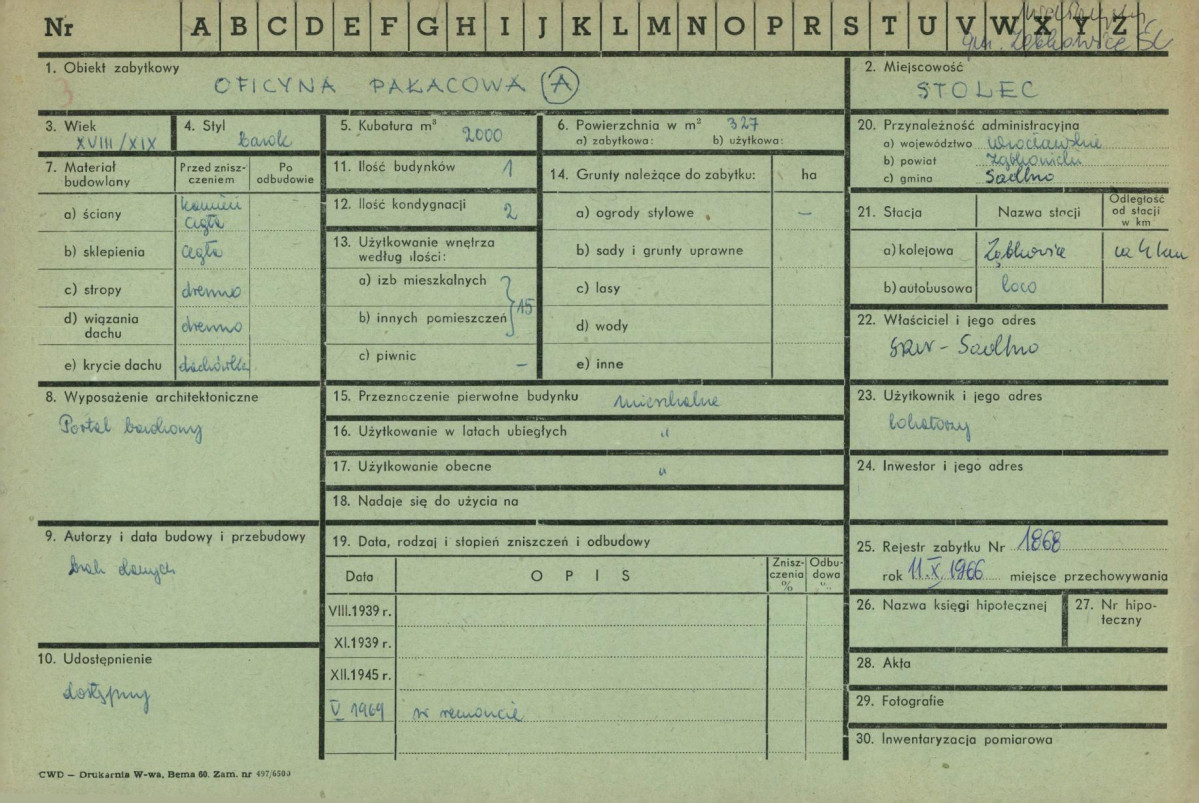 Nr A B C D E F G H I J K L M N O P R S T U V W X Y Z
gm. Ząbkowice Śl
1. Obiekt zabytkowy
3
OFICYNA PAŁACOWA (A)
2. Miejscowość
STOLEC
3. Wiek
XVIII/XIX
4. Styl
barok
5. Kubatura m³
2000
6. Powierzchnia w m² 327
a) zabytkowa: b) użytkowa:
20. Przynależność administracyjna
a) województwo wrocławskie
b) powiat Ząbkowicki
c) gmina Sadlno
7. Materiał budowlany
Przed zniszczeniem
Po odbudowie
a) ściany kamień cegła
b) sklepienia cegła
c) stropy drewno
d) wiązania dachu drewno
e) krycie dachu dachówka
11. Ilość budynków 1
12. Ilość kondygnacji 2
13. Użytkowanie wnętrza według ilości:
a) izb mieszkalnych
b) innych pomieszczeń } 15
c) piwnic –
14. Grunty należące do zabytku: ha
a) ogrody stylowe –
b) sady i grunty uprawne
c) lasy
d) wody
e) inne
21. Stacja
Nazwa stacji
Odległość od stacji w km
a) kolejowa Ząbkowice ca 4 km
b) autobusowa loco
22. Właściciel i jego adres
SKR - Sadlno
8. Wyposażenie architektoniczne
Portal barokowy
15. Przeznaczenie pierwotne budynku mieszkalne
16. Użytkowanie w latach ubiegłych "
17. Użytkowanie obecne "
18. Nadaje się do użycia na
23. Użytkownik i jego adres
lokatorzy
24. Inwestor i jego adres
9. Autorzy i data budowy i przebudowy
brak danych
10. Udostępnienie
dostępny
19. Data, rodzaj i stopień zniszczeń i odbudowy
Data
OPIS
Zniszczenia %
Odbudowa %
VIII.1939 r.
XI.1939 r.
XII.1945 r.
V 1969 w remoncie
25. Rejestr zabytku Nr 1868
rok 11.X.1966 miejsce przechowywania
26. Nazwa księgi hipotecznej
27. Nr hipoteczny
28. Akta
29. Fotografie
30. Inwentaryzacja pomiarowa
CWD – Drukarnia W-wa, Bema 60. Zam. nr 497/6500